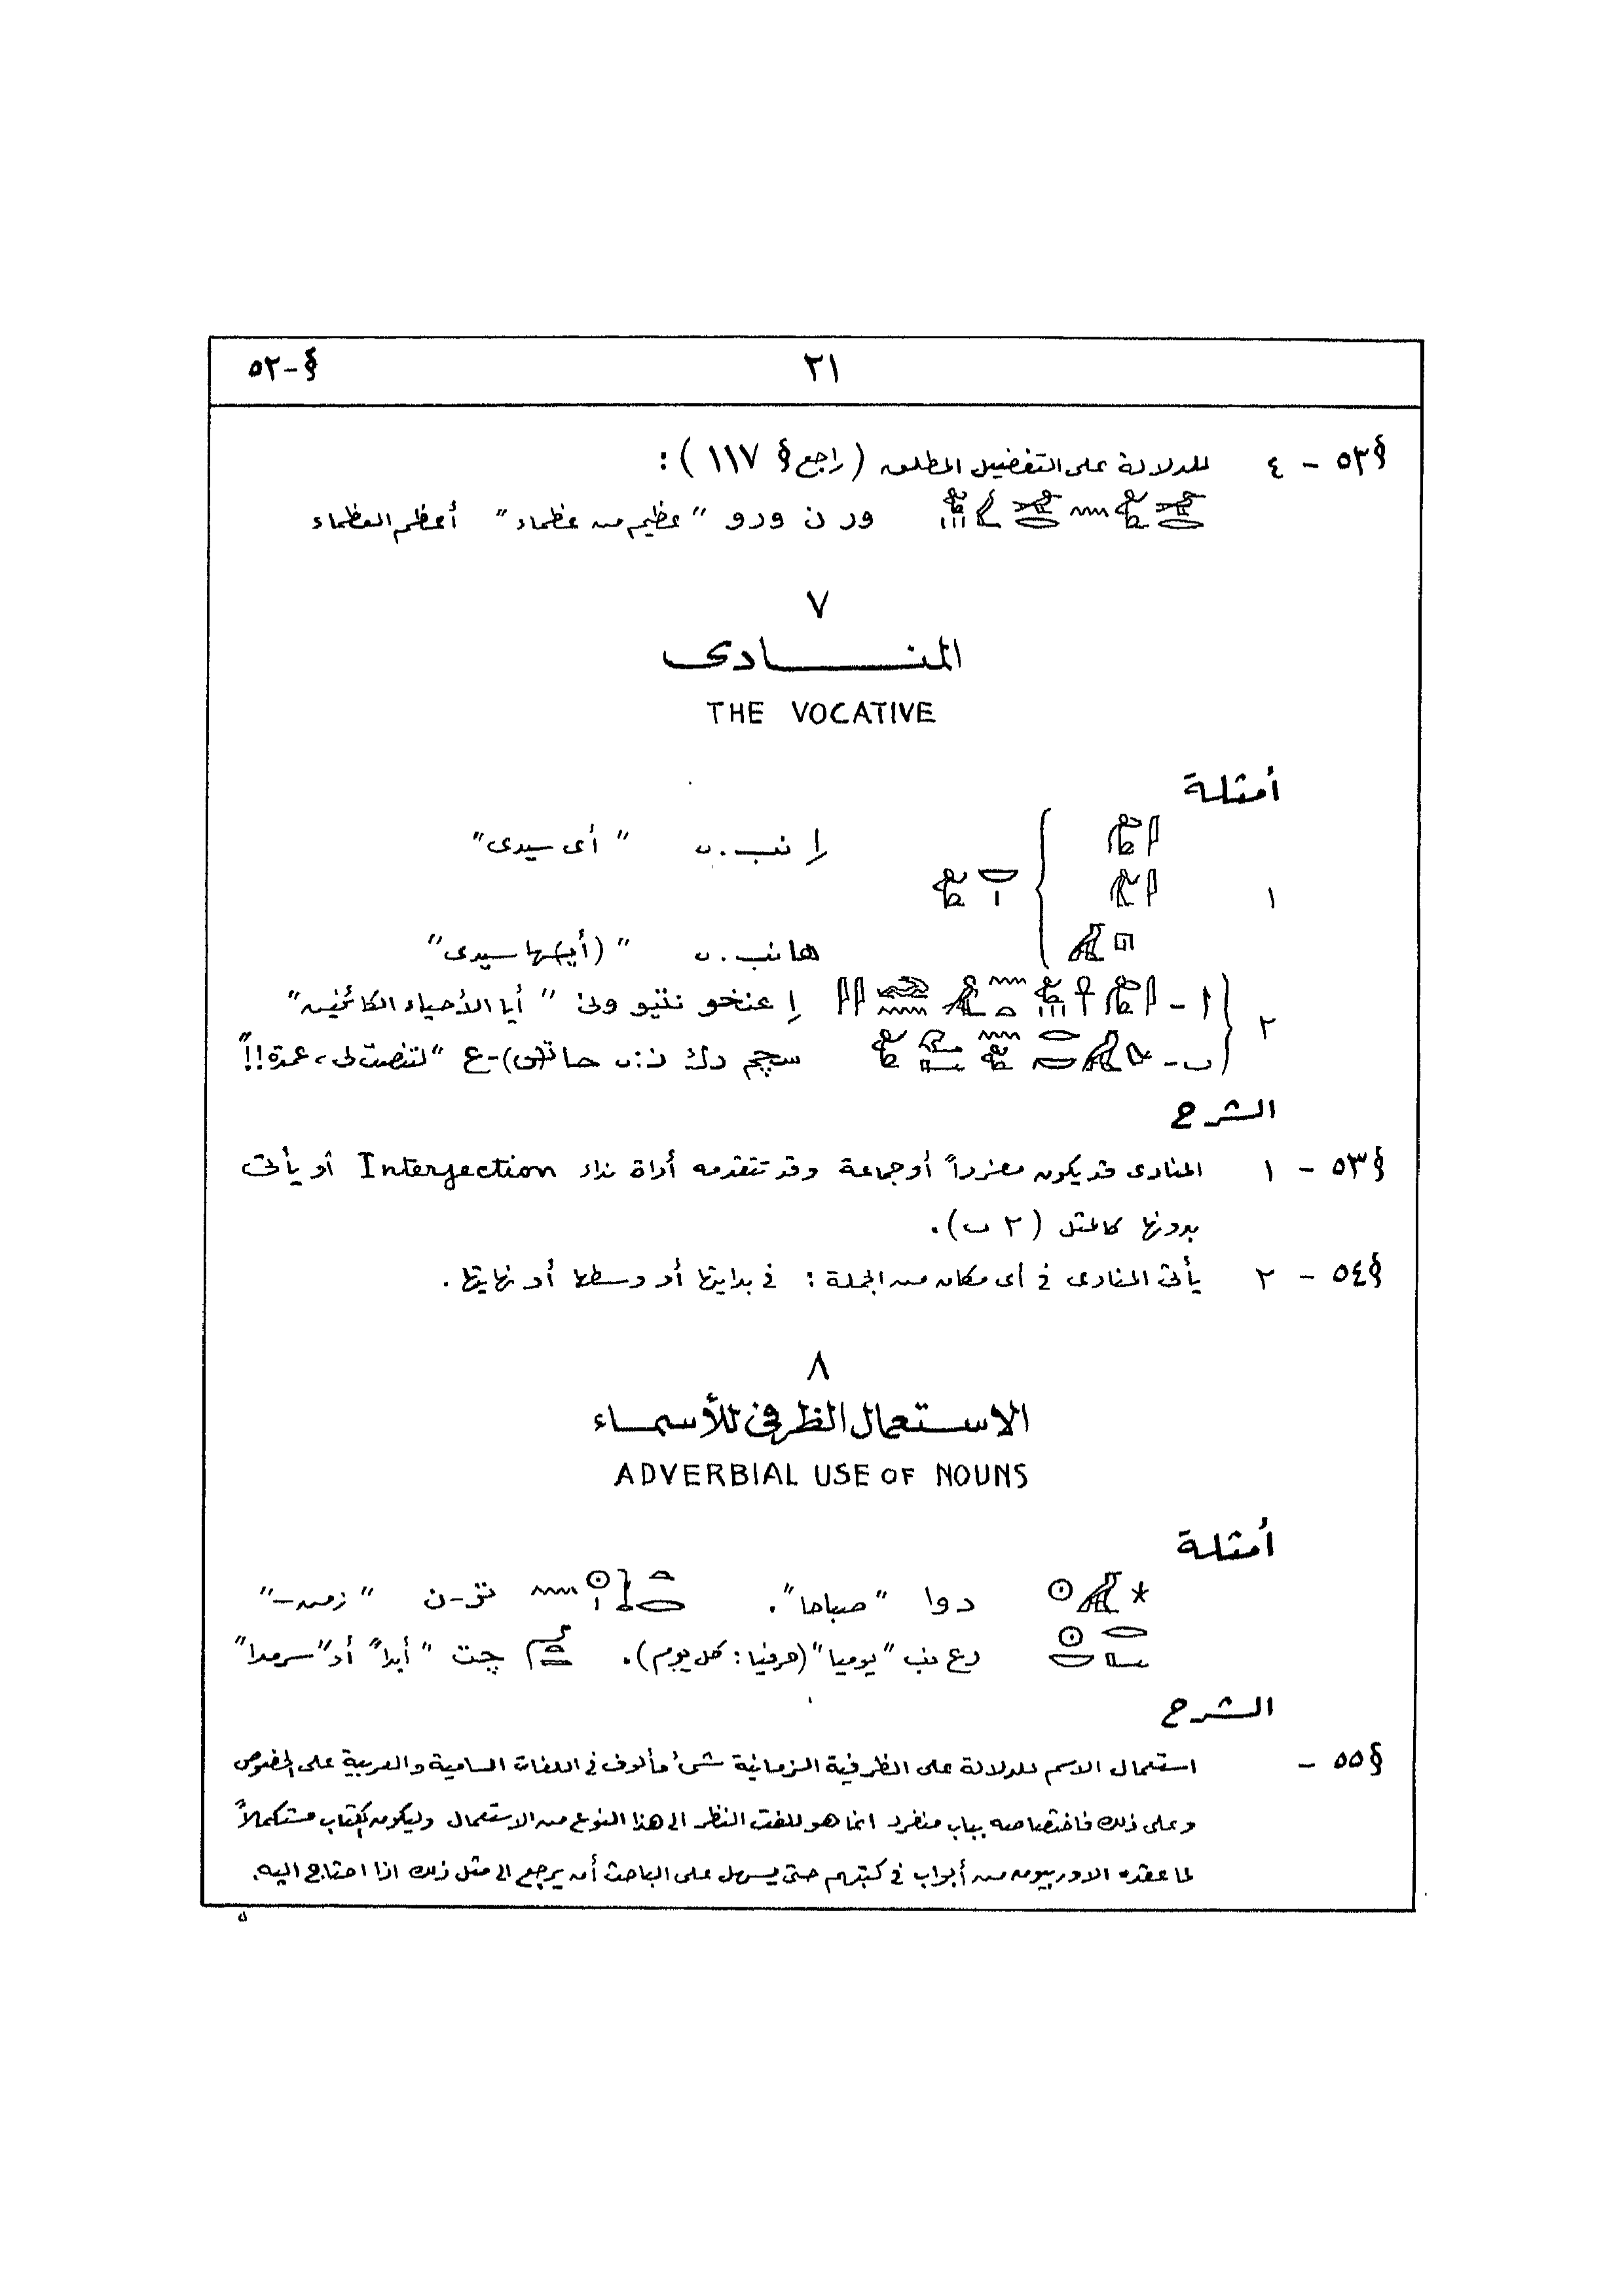 §-٥٢
٢١
§٥٢ - ٤ للدلالة على التفضيل المطلق (راجع § ١١٧):
ور ن ورو "عظيم من عظماء" أعظم العظماء
٧
المنادى
THE VOCATIVE
أمثلة
إ نب.ى "أى سيدى"
١
ها نب.ى "(أي)ها سيدى"
٢ ا- إ عنخو نتيو ونى "أيا الأحياء الكائنين"
ب- سچم رك ن:ى حاتى-ع "لتنصت لى، عمدة!!"
الشرح
§٥٣ - ١ المنادى قد يكون مفرداً أو جماعة وقد تتقدمه أداة نداء Interjection أو يأتى
بدونها كالمثل (٢ ب).
§٥٤ - ٢ يأتى المنادى فى أى مكان من الجملة: فى بدايتها أو وسطها أو نهايتها.
٨
الاستعمال الظرفى للأسماء
ADVERBIAL USE OF NOUNS
أمثلة
دوا "صباحا". تر-ن "زمن-"
رع نب "يوميا" (حرفيا: كل يوم). چت "أبدا" أو "سرمدا"
الشرح
§٥٥ - استعمال الاسم للدلالة على الظرفية الزمانية شئ مألوف فى اللغات السامية والعربية على الخصوص
وعلى ذلك فاختصاصه بباب منفرد انما هو للفت النظر الى هذا النوع من الاستعمال وليكون الكتاب مستكملاً
لما عقده الاوربيون من أبواب فى كتبهم حتى يسهل على الباحث أن يرجع الى مثل ذلك اذا احتاج اليه.